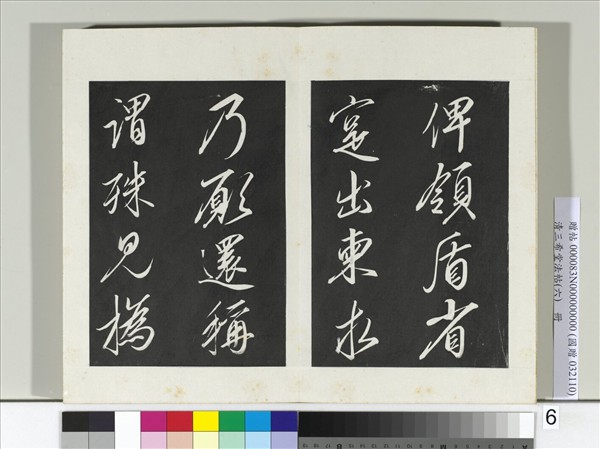 俾領盾省
寔出柬求
乃願還稱
謂殊見撝
贈帖 000083N000000000 (國贈 032110)
清三希堂法帖(六) 冊
6